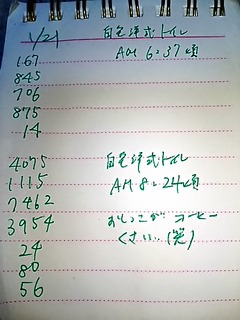 1/21 自宅洋式トイレ
167 AM 6:37頃
845
706
875
14
4075 自宅洋式トイレ
1115 AM 8:24頃
7462 おしっこが コーヒー
3954 くさい…(笑)
24
80
56